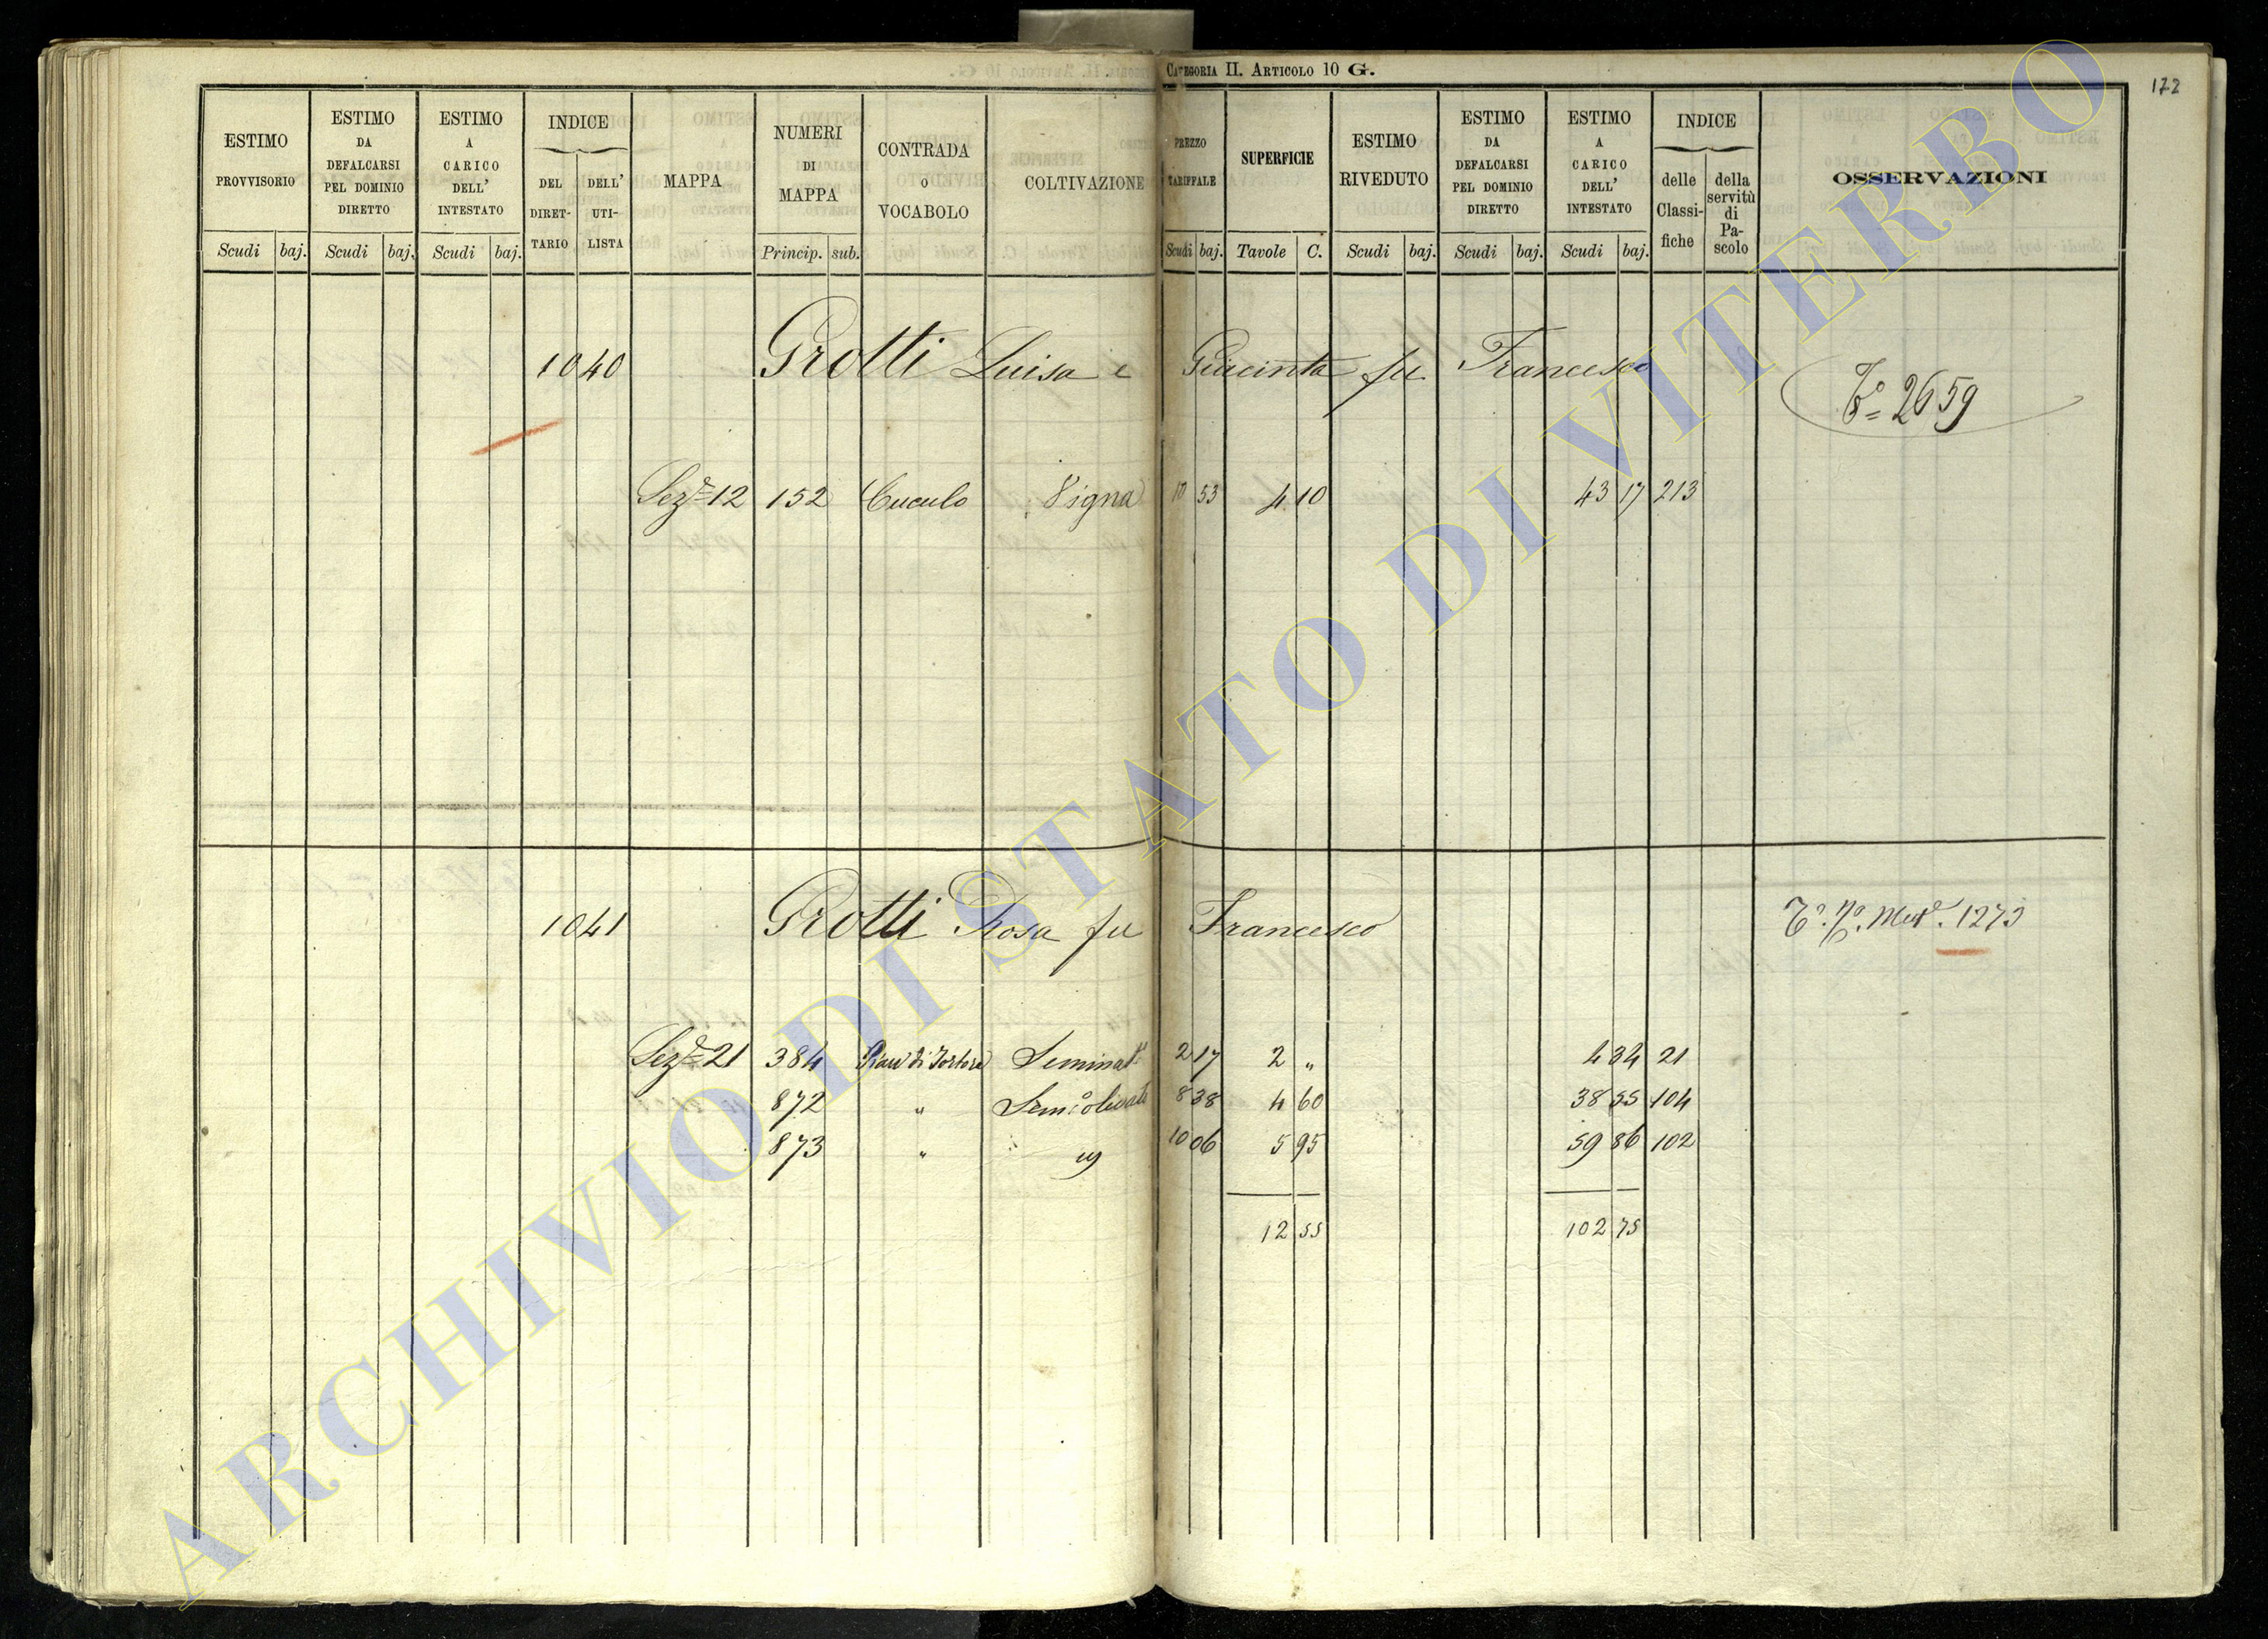 CATEGORIA II. ARTICOLO 10 G.
172
ESTIMO PROVVISORIO Scudi baj.
ESTIMO DA DEFALCARSI PEL DOMINIO DIRETTO Scudi baj.
ESTIMO A CARICO DELL' INTESTATO Scudi baj.
INDICE DEL DIRET- TARIO DELL' UTI- LISTA
MAPPA
NUMERI DI MAPPA Princip. sub.
CONTRADA O VOCABOLO
COLTIVAZIONE
PREZZO TARIFFALE Scudi baj.
SUPERFICIE Tavole C.
ESTIMO RIVEDUTO Scudi baj.
ESTIMO DA DEFALCARSI PEL DOMINIO DIRETTO Scudi baj.
ESTIMO A CARICO DELL' INTESTATO Scudi baj.
INDICE delle Classi- fiche della servitù di Pa- scolo
OSSERVAZIONI
1040 Grotti Luisa e Giacinta fu Francesco
To= 2659
Sezne 12 152 Cuculo Vigna 10 53 4 10 43 17 213
1041 Grotti Rosa fu Francesco
1273
Sezne 21 384 di Tortora Seminato 2 17 2 " 4 34 21
872 " Semo olivato 8 38 4 60 38 55 104
873 " 10 06 5 95 59 86 102
12 55 102 75
ARCHIVIO DI STATO DI VITERBO